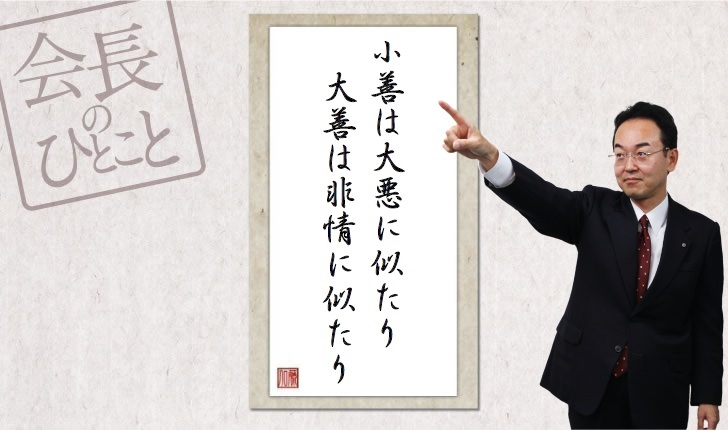 会長
の
ひとこと
小善は大悪に似たり
大善は非情に似たり